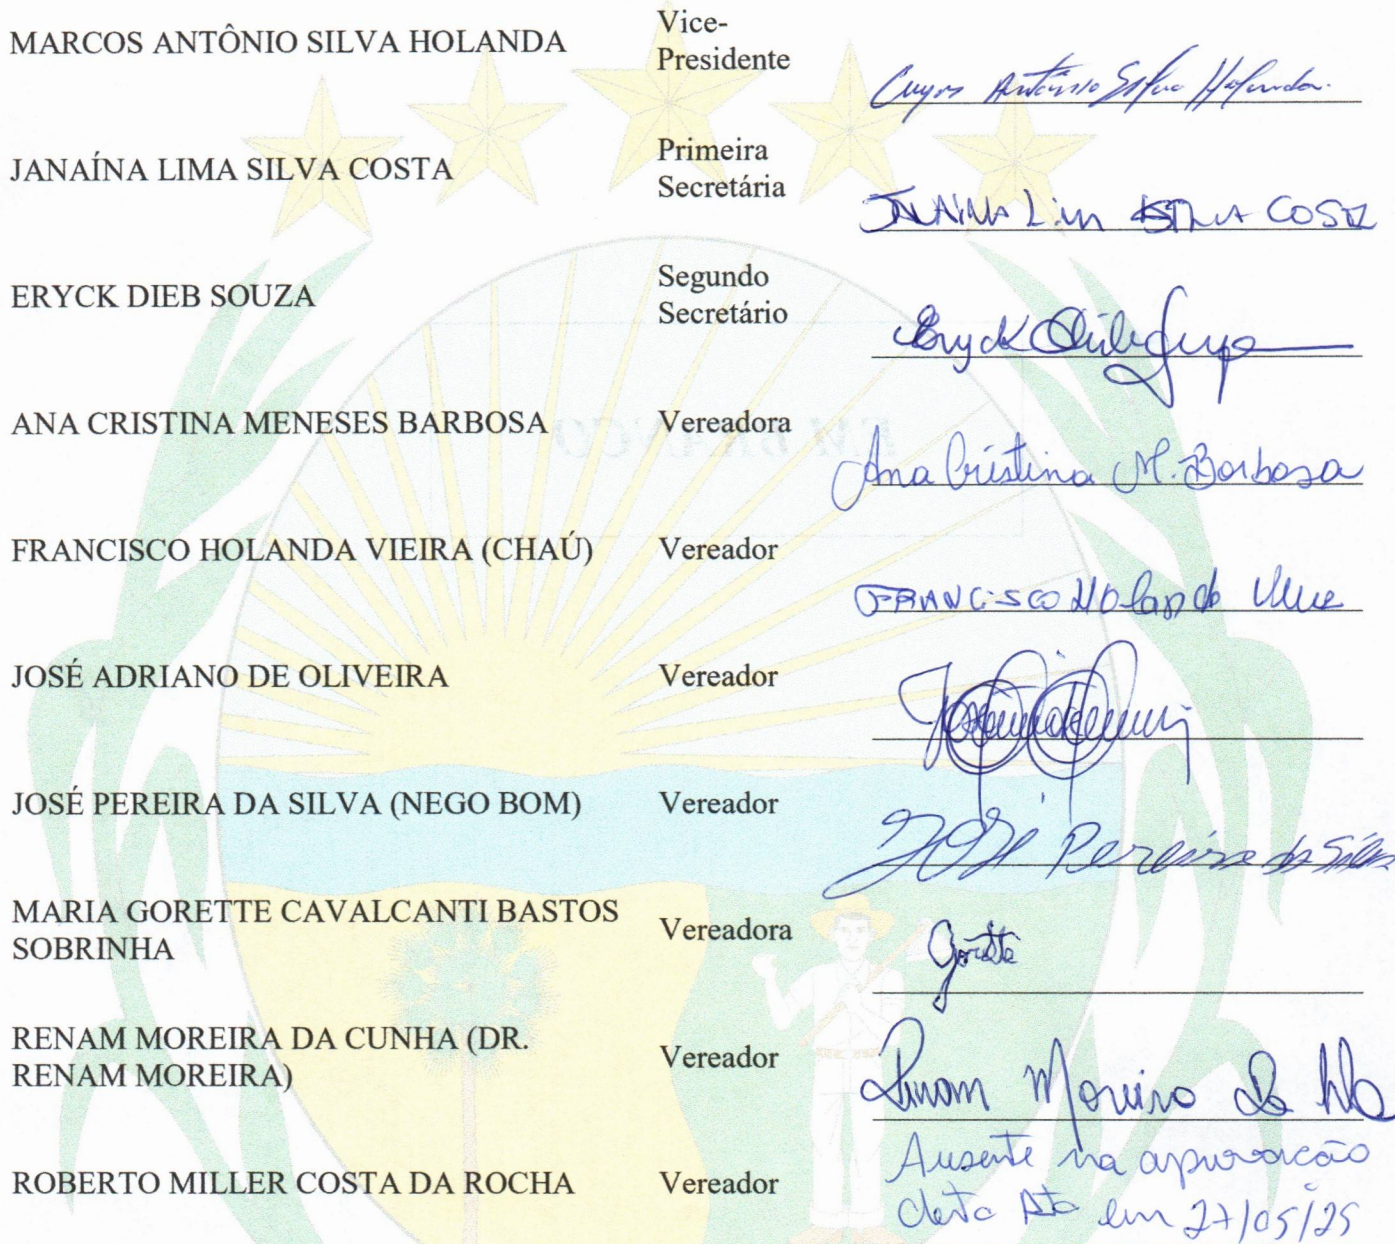 MARCOS ANTÔNIO SILVA HOLANDA
Vice-
Presidente
Antônio Silva Holanda.
JANAÍNA LIMA SILVA COSTA
Primeira
Secretária
JANAINA Lima SILVA COSTA
ERYCK DIEB SOUZA
Segundo
Secretário
Eryck Dieb Souza
ANA CRISTINA MENESES BARBOSA
Vereadora
Ana Cristina M. Barbosa
EM BRANCO
FRANCISCO HOLANDA VIEIRA (CHAÚ)
Vereador
FRANCISCO Holanda
JOSÉ ADRIANO DE OLIVEIRA
Vereador
JOSÉ PEREIRA DA SILVA (NEGO BOM)
Vereador
José Pereira da Silva
MARIA GORETTE CAVALCANTI BASTOS
SOBRINHA
Vereadora
Gorette
RENAM MOREIRA DA CUNHA (DR.
RENAM MOREIRA)
Vereador
Renam Moreira da
ROBERTO MILLER COSTA DA ROCHA
Vereador
Ausente na aprovação
desta Ata em 27/05/25